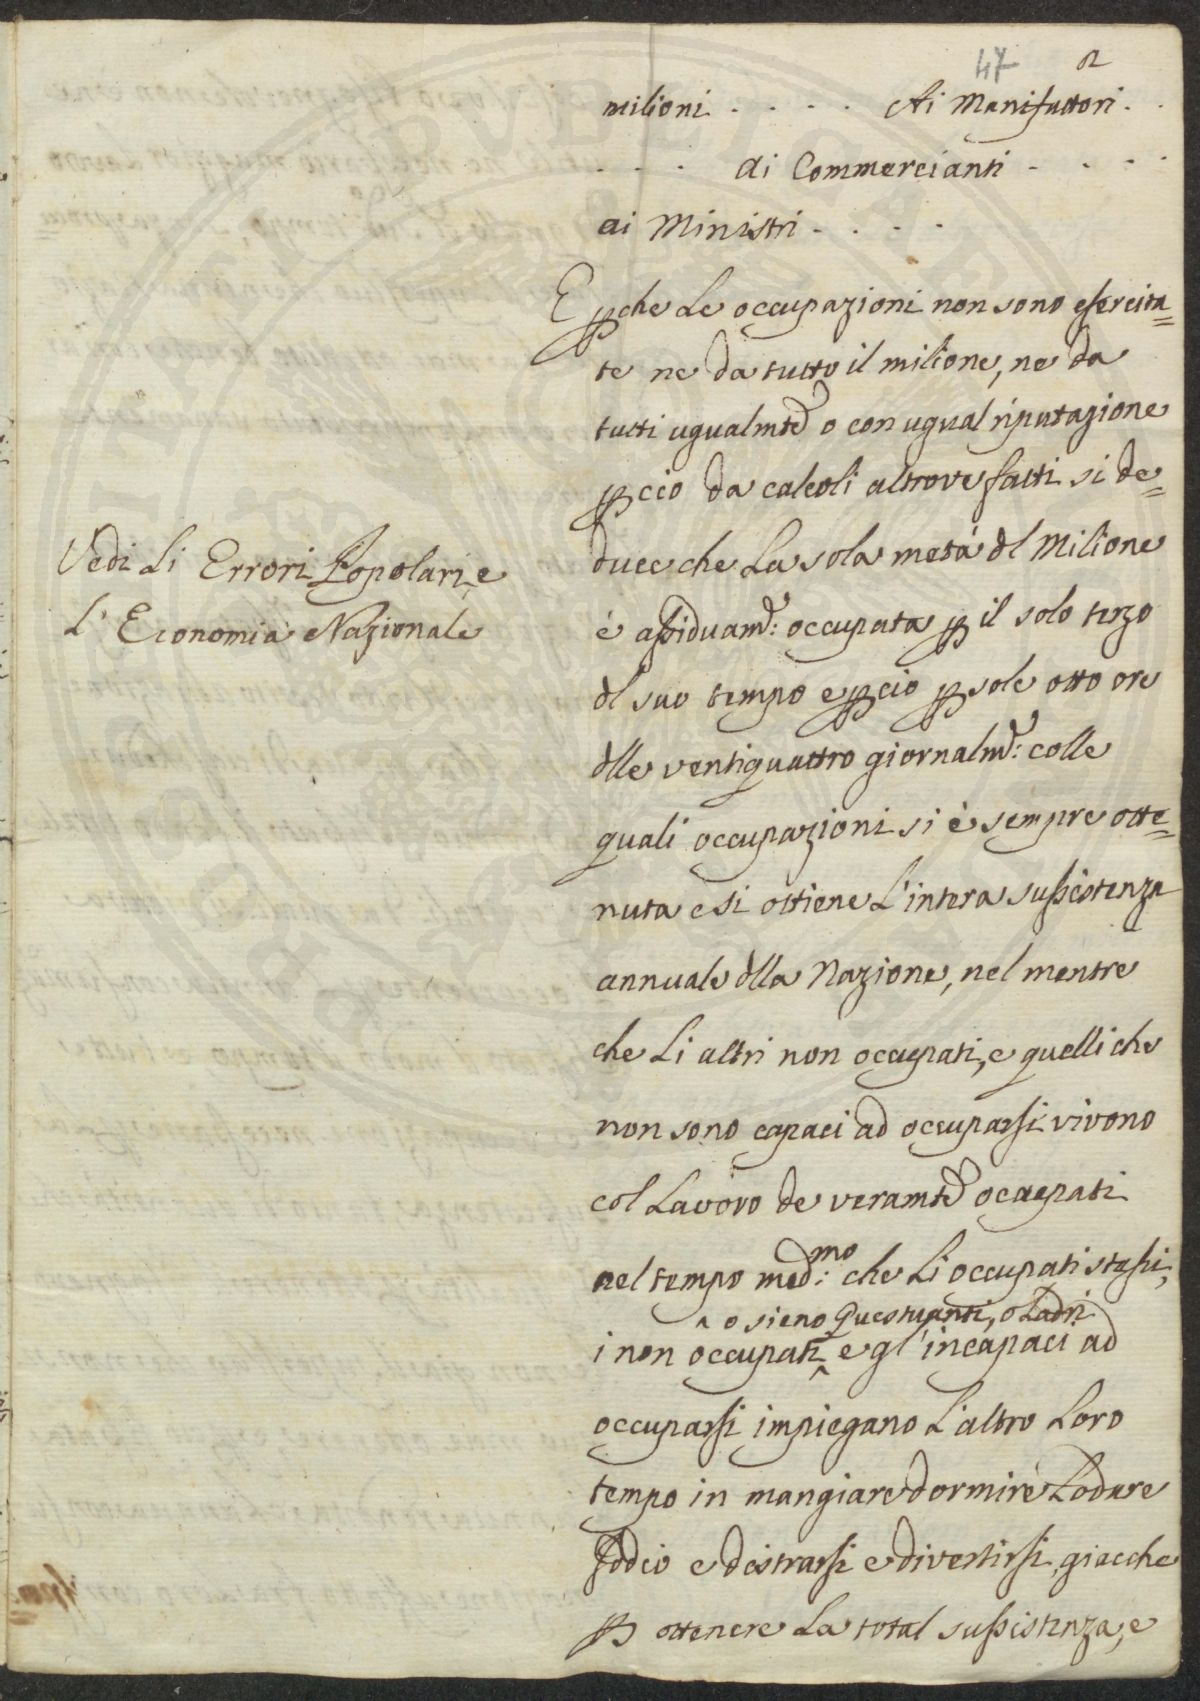 47
milioni . . . . Ai Manifattori . .
. . . ai Commercianti . . . .
ai Ministri . . . .
E pche Le occupazioni non sono esercita=
te ne da tutto il milione, ne da
tutti ugualmte o con ugual riputazione
pciò da calcoli altrove fatti si de=
duce che La sola metà dl Milione
Vedi Li Errori Popolari, e
L'Economia Nazionale
è assiduamte: occupata p il solo terzo
dl suo tempo e pciò p sole otto ore
dlle ventiquattro giornalmte: colle
quali occupazioni si è sempre otte=
nuta e si ottiene L'intera sussistenza
annuale dlla Nazione, nel mentre
che Li altri non occupati, e quelli che
non sono capaci ad occuparsi vivono
col Lavoro de veramte occupati
nel tempo med:mo che Li occupati stessi,
^ o sieno Questuanti, o Ladri
i non occupati ^ e gl'incapaci ad
occuparsi impiegano L'altro Loro
tempo in mangiare dormire Lodare
Iddio e distrarsi e divertirsi, giacche
p ottenere La total sussistenza, e